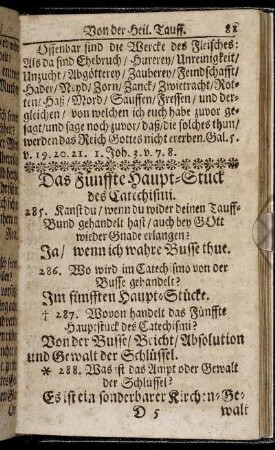 Von der Heil. Tauff. 81
Offenbar sind die Wercke des Fleisches:
Als da sind Ehebruch/ Hurerey/ Unreinigkeit/
Unzucht/ Abgötterey/ Zauberey/ Feindschafft/
Hader/ Neyd/ Zorn/ Zanck/ Zwietracht/ Rot-
ten/ Haß/ Mord/ Sauffen/ Fressen/ und der-
gleichen/ von welchen ich euch habe zuvor ge-
sagt/ und sage noch zuvor/ daß/ die solches thun/
werden das Reich Gottes nicht ererben. Gal. 5.
v. 19. 20. 21. 1. Joh. 3. v. 7. 8.
Das Fünffte Haupt-Stück
des Catechismi.
285. Kanst du/ wenn du wider deinen Tauff-
Bund gehandelt hast/ auch bey GOtt
wieder Gnade erlangen?
Ja/ wenn ich wahre Busse thue.
286. Wo wird im Catechismo von der
Busse gehandelt?
Im fünfften Haupt-Stücke.
† 287. Wovon handelt das Fünffte
Hauptstuck des Catechismi?
Von der Busse/ Beicht/ Absolution
und Gewalt der Schlüssel.
* 288. Was ist das Ampt oder Gewalt
der Schlüssel?
Es ist ein sonderbarer Kirchen-Ge-
D 5 walt